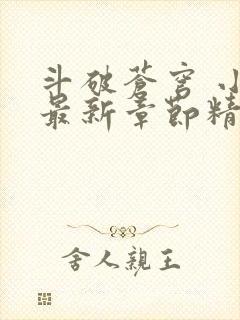 斗破苍穹 小
最新章節精
舍人親王